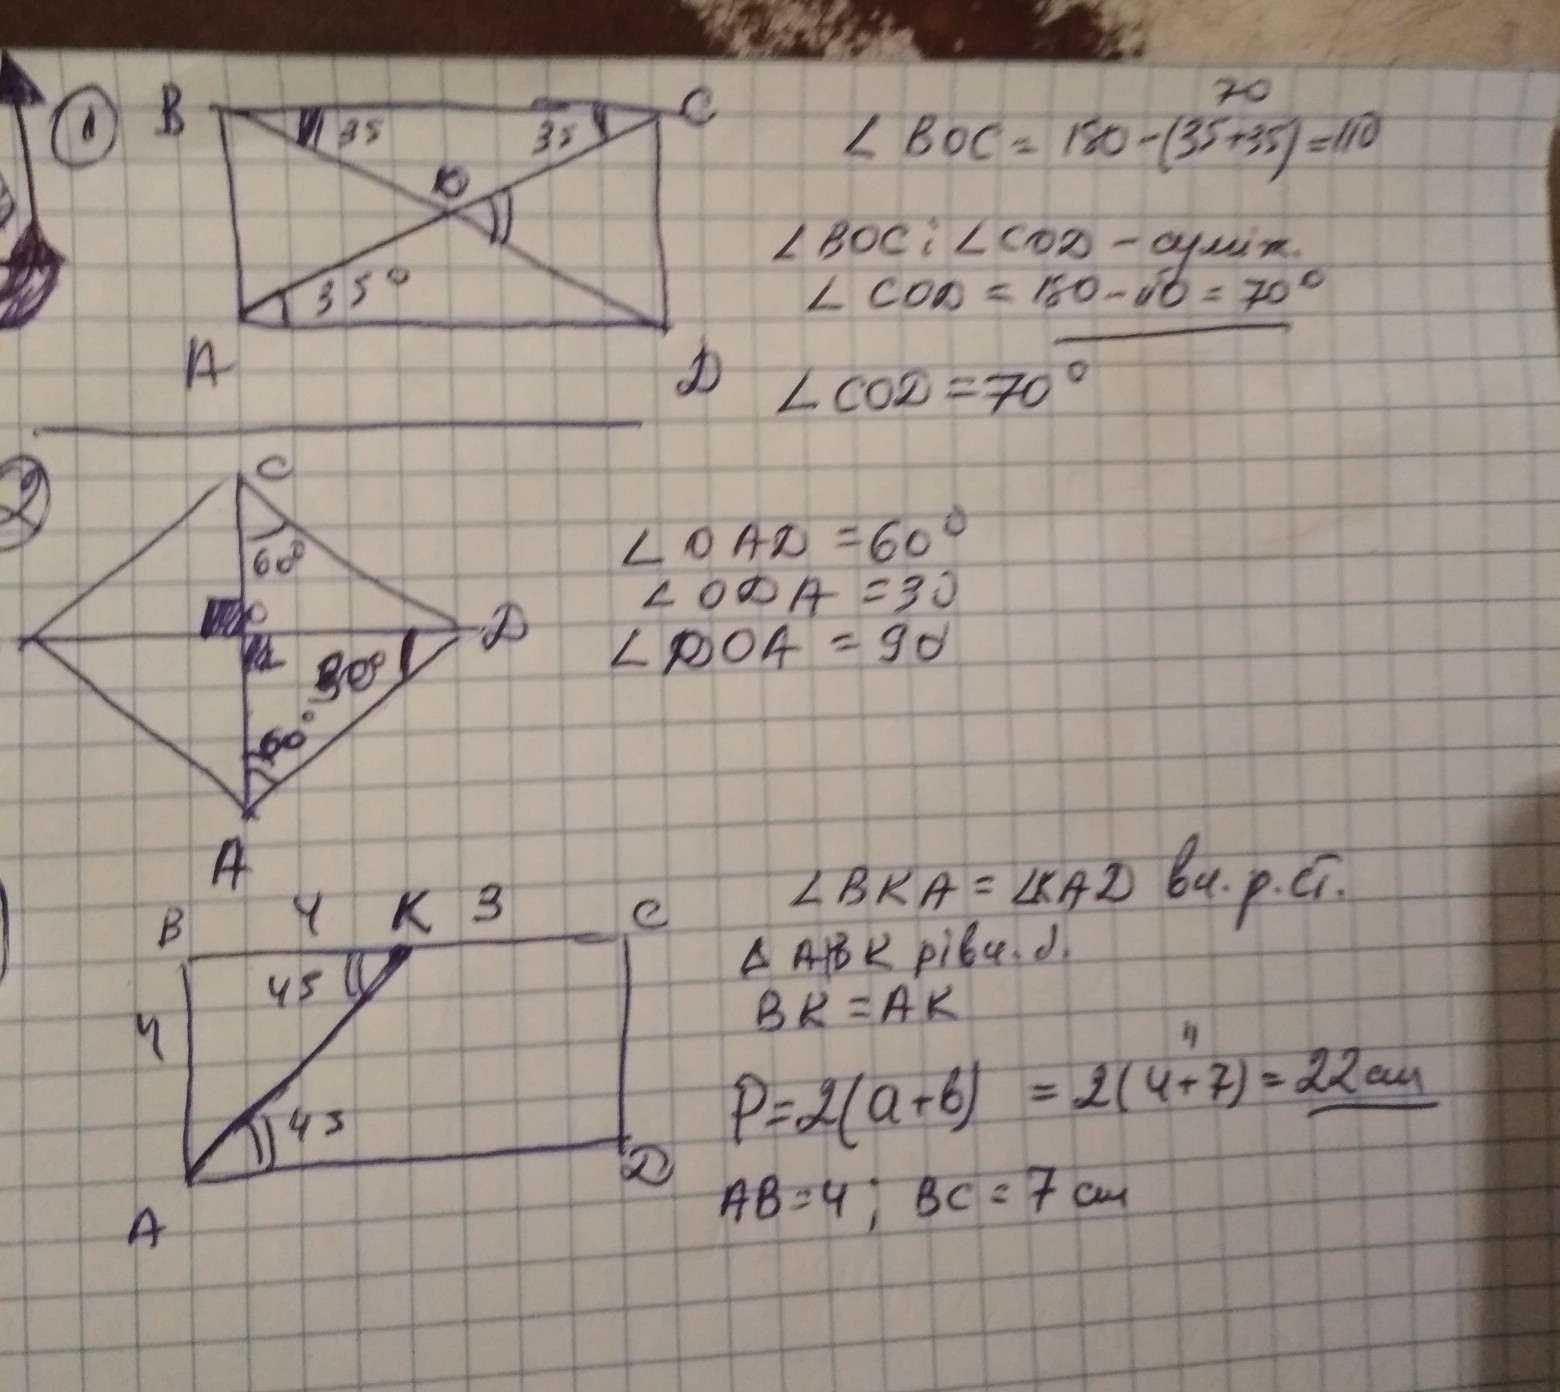 1 B 35 35 C
O
35°
A D
70
∠ BOC = 180-(35+35)=110
∠BOC і ∠COD - суміж.
∠ COD = 180-110 = 70°
∠COD = 70°
2 C
60°
O
D
30°
60°
A
∠ OAD = 60°
∠ ODA = 30
∠ DOA = 90
B 4 K 3 C
45
4
45
A D
∠BKA = ∠KAD вн. р. ст.
Δ ABK рівн. б.
BK = AK
11
P=2(a+b) = 2(4+7) = 22 см
AB=4; BC = 7 см